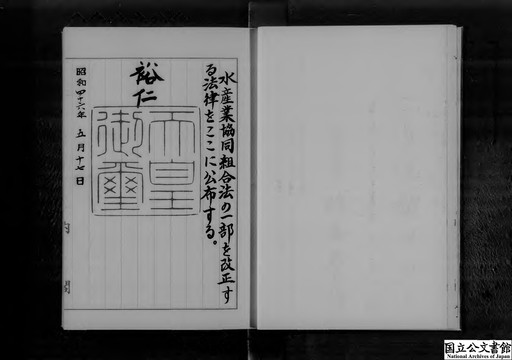 水産業協同組合法の一部を改正す
る法律をここに公布する。
裕仁
天皇
御璽
昭和四十六年 五月十七日
国立公文書館
National Archives of Japan